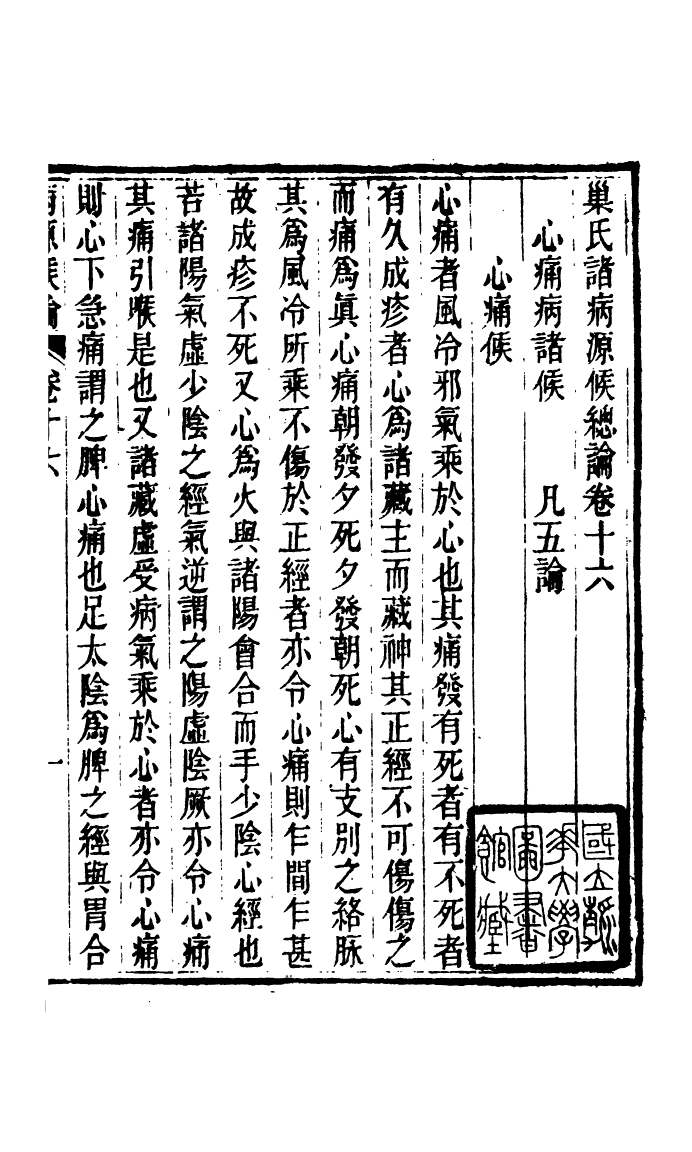 巢氏諸病源候總論卷十六
心痛病諸候　凡五論
心痛候
心痛者風冷邪氣乘於心也其痛發有死者有不死者
有久成疹者心爲諸藏主而藏神其正經不可傷傷之
而痛爲眞心痛朝發夕死夕發朝死心有支別之絡脉
其爲風冷所乘不傷於正經者亦令心痛則乍間乍甚
故成疹不死又心爲火與諸陽會合而手少陰心經也
若諸陽氣虛少陰之經氣逆謂之陽虛陰厥亦令心痛
其痛引喉是也又諸藏虛受病氣乘於心者亦令心痛
則心下急痛謂之脾心痛也足太陰爲脾之經與胃合
病源候論　卷十六　一
國立
華大學
圖書
館藏